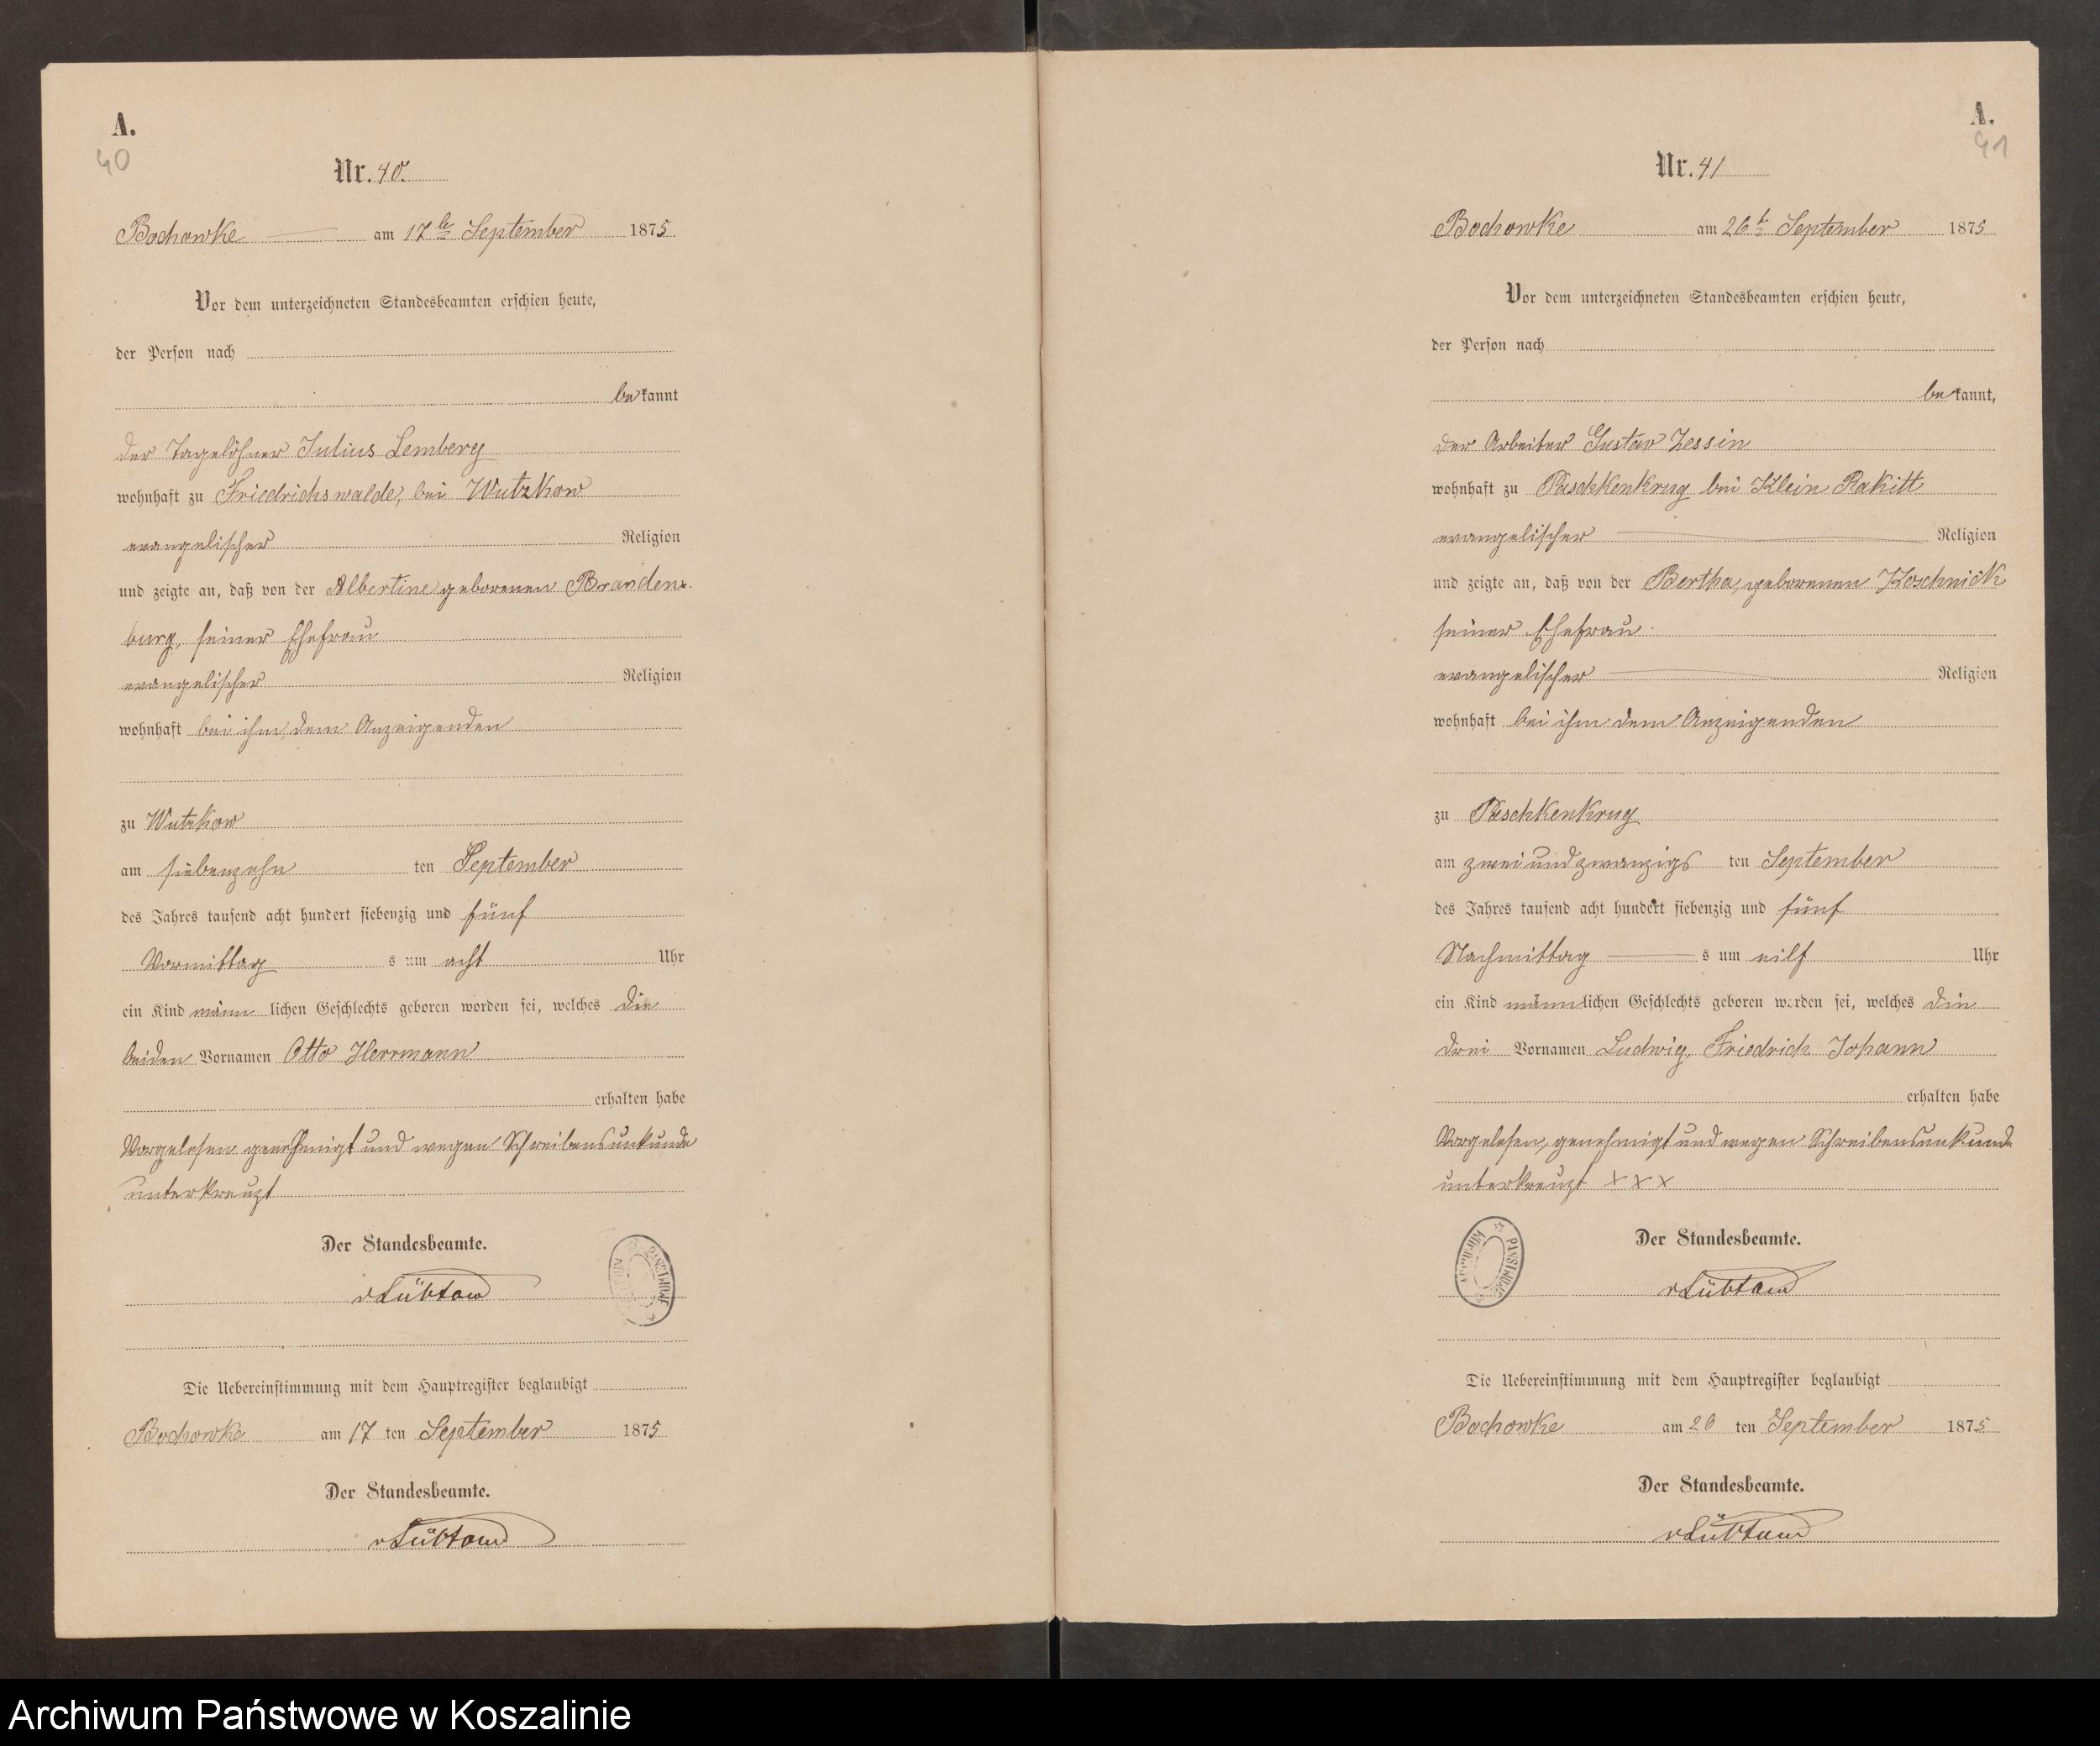 A.
40
Nr. 40.
Bochowke am 17te September 1875
Vor dem unterzeichneten Standesbeamten erschien heute,
der Person nach
bekannt
der Tagelöhner Julius Lemberg
wohnhaft zu Friedrichswalde, bei Wutzkow
evangelischer Religion
und zeigte an, daß von der Albertine geborenen Branden-
burg, seiner Ehefrau
evangelischer Religion
wohnhaft bei ihm, dem Anzeigenden
zu Wutzkow
am siebenzehn ten September
des Jahres tausend acht hundert siebenzig und fünf
Vormittag s um acht Uhr
ein Kind männ lichen Geschlechts geboren worden sei, welches die
beiden Vornamen Otto Herrmann
erhalten habe
Vorgelesen genehmigt und wegen Schreibensunkunde
unterkreuzt
Der Standesbeamte.
vLübtow
ARCHIWUM PAŃSTWOWE
Die Uebereinstimmung mit dem Hauptregister beglaubigt
Bochowke am 17 ten September 1875
Der Standesbeamte.
vLübtow
A.
41
Nr. 41
Bochowke am 26t September 1875
Vor dem unterzeichneten Standesbeamten erschien heute,
der Person nach
bekannt,
der Arbeiter Gustav Zessin
wohnhaft zu Paschkenkrug bei Klein Rakitt
evangelischer Religion
und zeigte an, daß von der Bertha, geborenen Koschnick
seiner Ehefrau
evangelischer Religion
wohnhaft bei ihm dem Anzeigenden
zu Paschkenkrug
am zweiundzwanzigs ten September
des Jahres tausend acht hundert siebenzig und fünf
Nachmittag s um eilf Uhr
ein Kind männlichen Geschlechts geboren worden sei, welches die
drei Vornamen Ludwig, Friedrich Johann
erhalten habe
Vorgelesen, genehmigt und wegen Schreibensunkunde
unterkreuzt XXX
Der Standesbeamte.
vLübtow
ARCHIWUM PAŃSTWOWE
Die Uebereinstimmung mit dem Hauptregister beglaubigt
Bochowke am 26 ten September 1875
Der Standesbeamte.
vLübtow
Archiwum Państwowe w Koszalinie